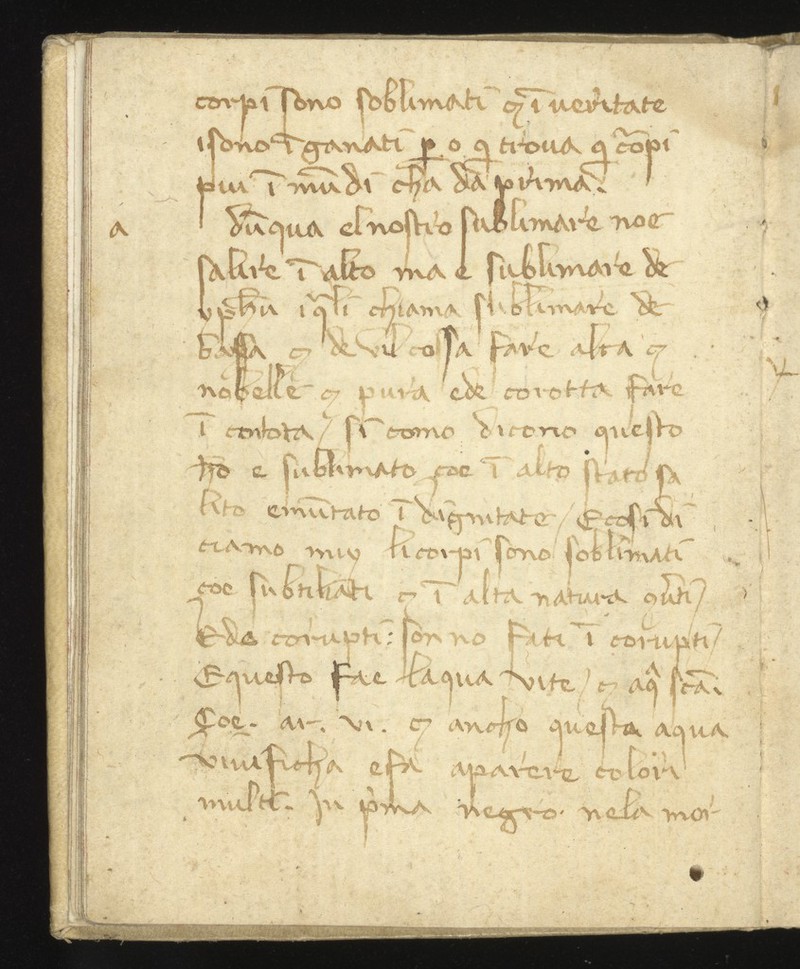 corpi sono soblimati ⁊ ī ueritate
isono īganati ꝑ o q̄ trova q̄ cōpi
pui ī mūdi cha dā prima.
a
dūqua el nostro sublimare noe
salire ī alto ma e sublimare de
chiama sublimare de
bassa ⁊ de vil cossa fare alta ⁊
nobelle ⁊ pura e de corotta fare
ī corota / si como dicono questo
ho e sublimato çoe ī alto stato sa
lito emūtato ī dignitate / E cosi di
ciamo nuy li corpi sono soblimati
çoe subtiliati ⁊ ī alta natura
E de corupti: sonno fati ī corupti /
E questo fae laqua vite / ⁊ aq̄ scā.
Çoe. ar. vi. ⁊ ancho questa aqua
viuificha e fa aparere colori
multi. In pma negro. nela mor